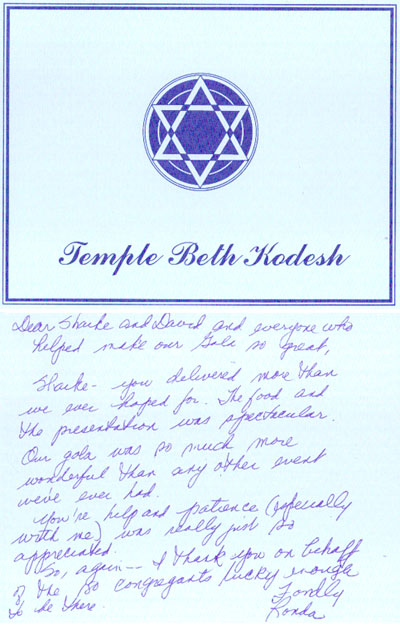 Temple Beth Kodesh
Dear Shaike and David and everyone who
helped make our Gala so great,
Shaike - you delivered more than
we ever hoped for. The food and
the presentation was spectacular.
Our gala was so much more
wonderful than any other event
we've ever had.
You're help and patience (especially
with me) was really just so
appreciated.
So, again -- I thank you on behalf
of the 80 congregants lucky enough
to be there.
Fondly
Ronda